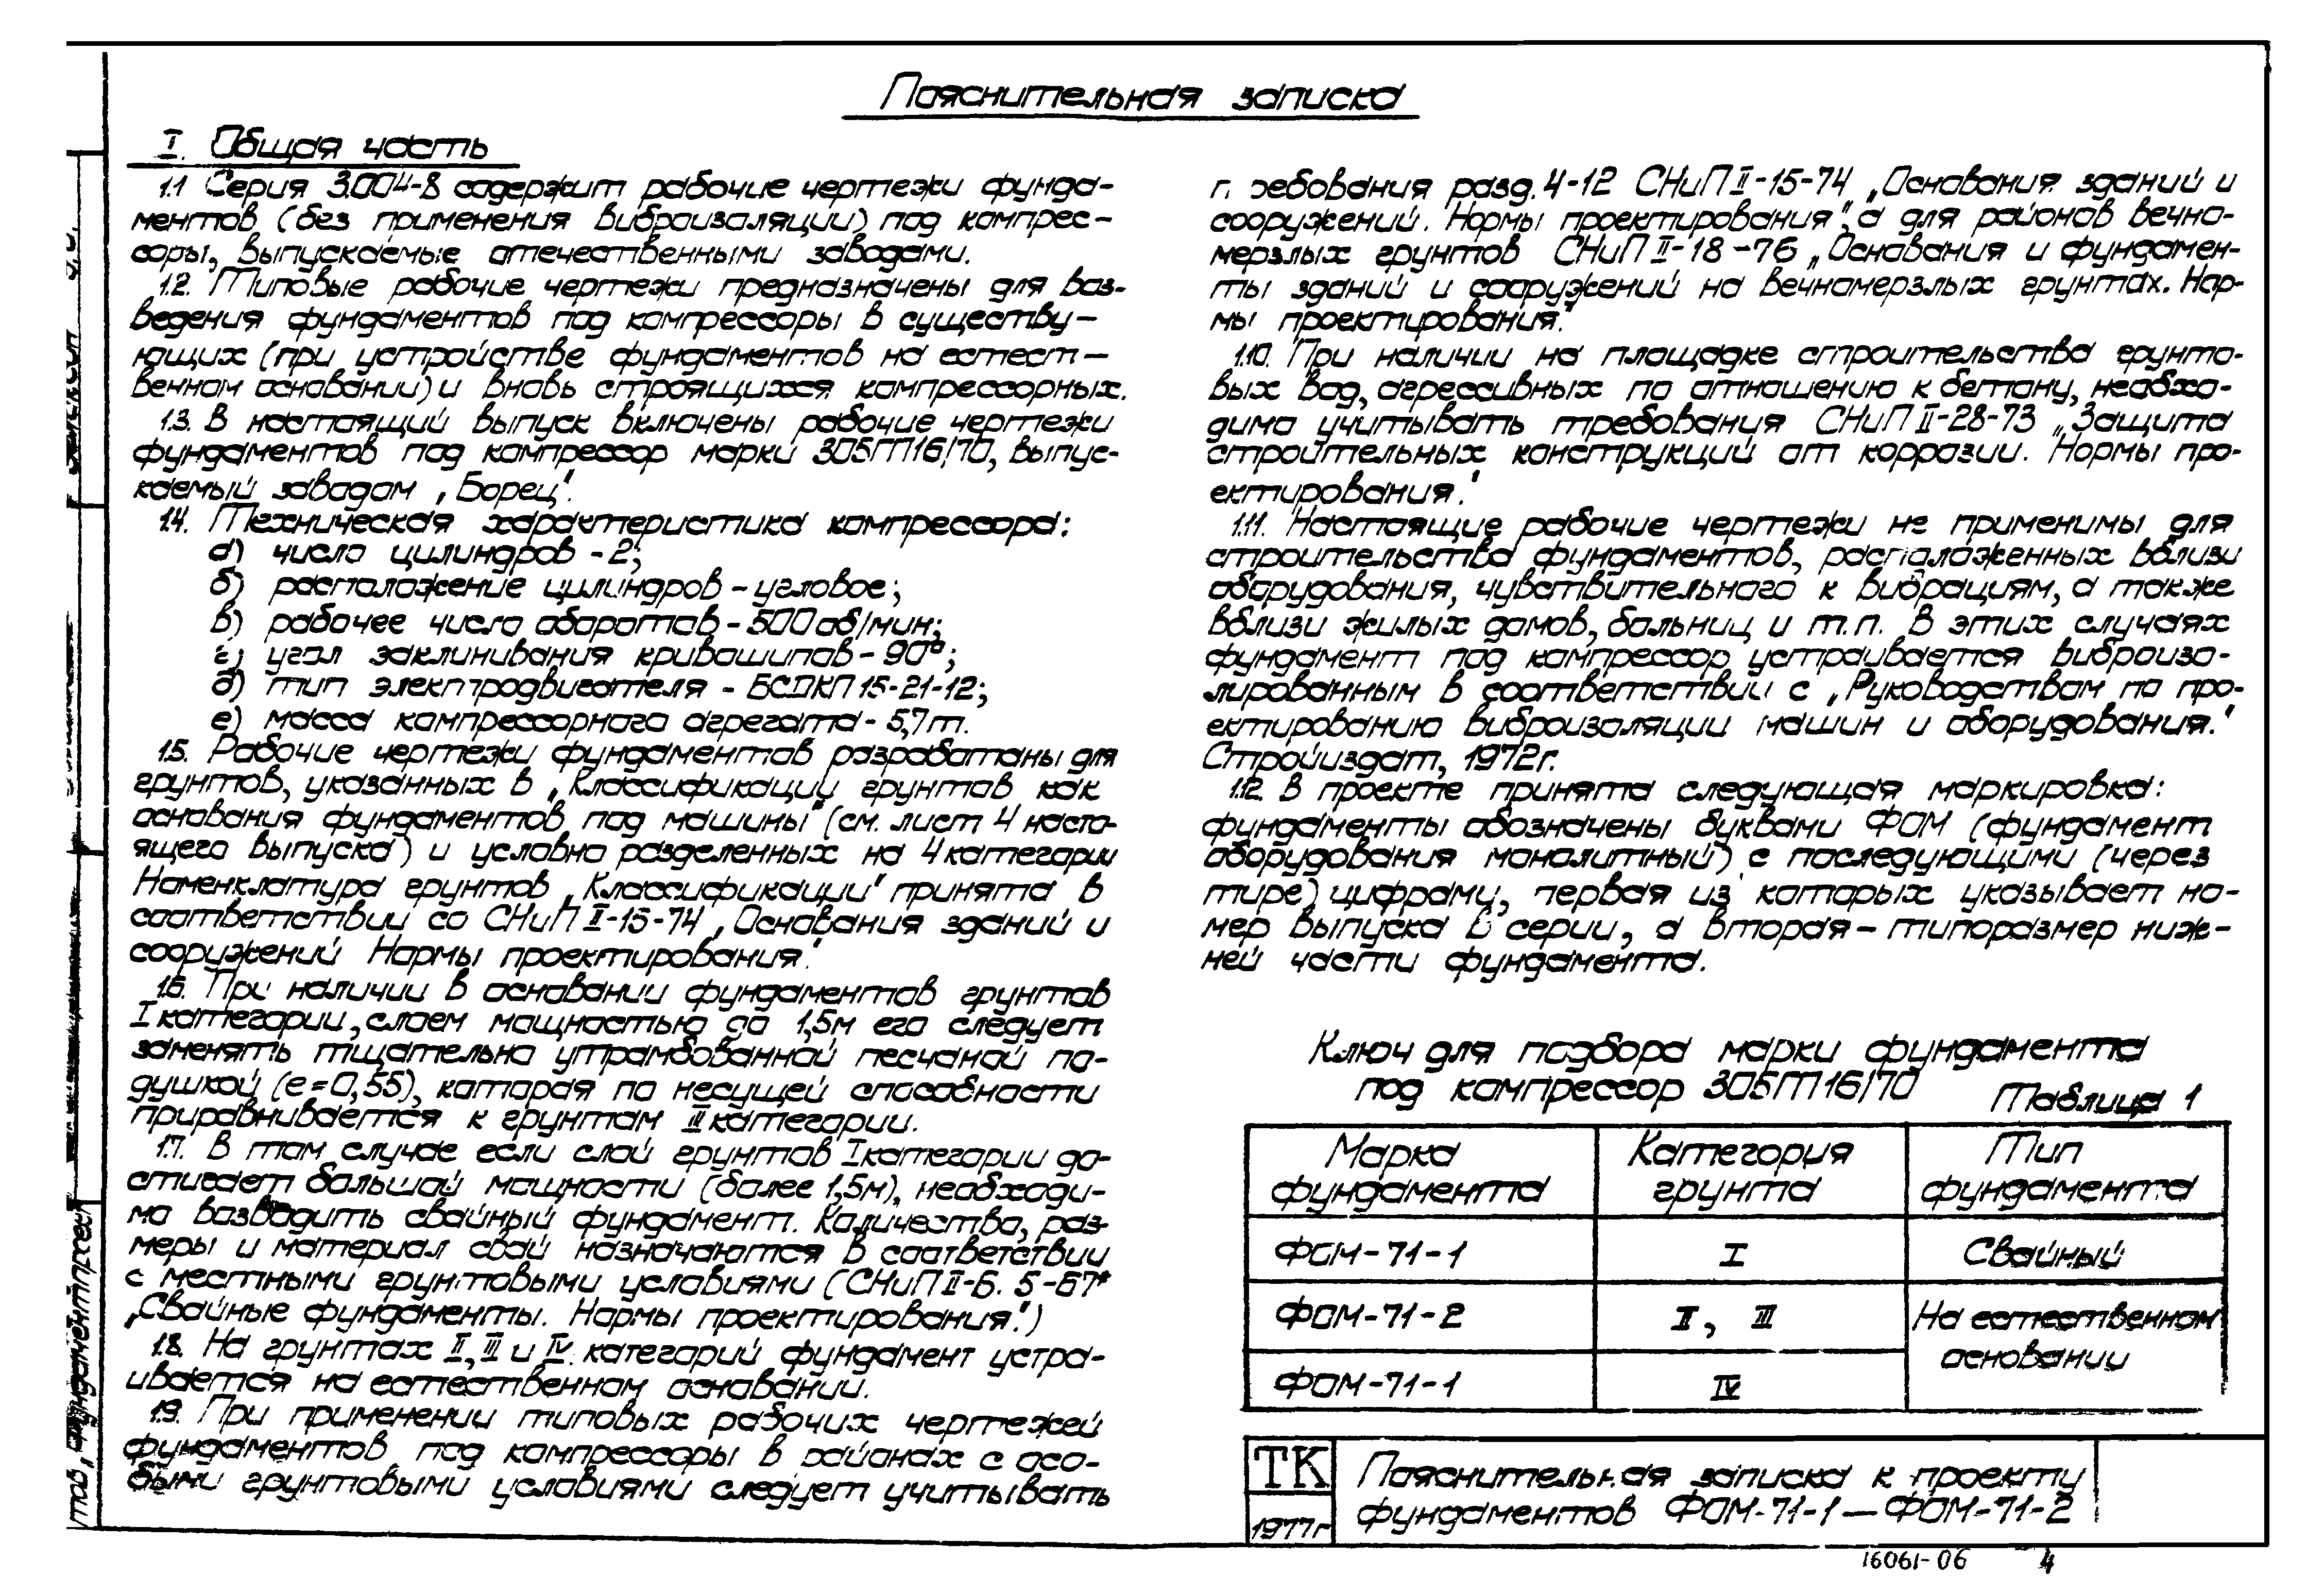 Пояснительная записка
I. Общая часть
1.1 Серия 3.004-8 содержит рабочие чертежи фунда-
ментов (без применения виброизоляции) под компрес-
соры, выпускаемые отечественными заводами.
1.2. Типовые рабочие чертежи предназначены для воз-
ведения фундаментов под компрессоры в существу-
ющих (при устройстве фундаментов на естест-
венном основании) и вновь строящихся компрессорных.
1.3. В настоящий выпуск включены рабочие чертежи
фундаментов под компрессор марки 305ГП16/70, выпус-
каемый заводом „Борец".
1.4. Техническая характеристика компрессора:
а) число цилиндров - 2;
б) расположение цилиндров - угловое;
в) рабочее число оборотов - 500 об/мин;
г) угол заклинивания кривошипов - 90°;
д) тип электродвигателя - БСДКП 15-21-12;
е) масса компрессорного агрегата - 5,7т.
1.5. Рабочие чертежи фундаментов разработаны для
грунтов, указанных в „Классификации грунтов как
основания фундаментов под машины" (см. лист 4 насто-
ящего выпуска) и условно разделенных на 4 категории
Номенклатура грунтов „Классификации" принята в
соответствии со СНиП II-15-74 „Основания зданий и
сооружений Нормы проектирования."
1.6. При наличии в основании фундаментов грунтов
I категории, слоем мощностью до 1,5м его следует
заменять тщательно утрамбованной песчаной по-
душкой (е=0,55), которая по несущей способности
приравнивается к грунтам III категории.
1.7. В том случае если слой грунтов I категории до-
стигает большой мощности (более 1,5м), необходи-
мо возводить свайный фундамент. Количество, раз-
меры и материал свай назначаются в соответствии
с местными грунтовыми условиями (СНиП II-Б. 5-67*
„Свайные фундаменты. Нормы проектирования".)
1.8. На грунтах II, III и IV категорий фундамент устра-
ивается на естественном основании.
1.9. При применении типовых рабочих чертежей
фундаментов под компрессоры в районах с осо-
быми грунтовыми условиями следует учитывать
требования разд. 4-12 СНиП II-15-74 „Основания зданий и
сооружений. Нормы проектирования", а для районов вечно-
мерзлых грунтов СНиП II-18-76 „Основания и фундамен-
ты зданий и сооружений на вечномерзлых грунтах. Нор-
мы проектирования."
1.10. При наличии на площадке строительства грунто-
вых вод, агрессивных по отношению к бетону, необхо-
димо учитывать требования СНиП II-28-73 „Защита
строительных конструкций от коррозии. Нормы про-
ектирования."
1.11. Настоящие рабочие чертежи не применимы для
строительства фундаментов, расположенных вблизи
оборудования, чувствительного к вибрациям, а также
вблизи жилых домов, больниц и т.п. В этих случаях
фундамент под компрессор устраивается виброизо-
лированным в соответствии с „Руководством по про-
ектированию виброизоляции машин и оборудования."
Стройиздат, 1972г.
1.12. В проекте принята следующая маркировка:
фундаменты обозначены буквами ФОМ (фундамент
оборудования монолитный) с последующими (через
тире) цифрами, первая из которых указывает но-
мер выпуска в серии, а вторая - типоразмер ниж-
ней части фундамента.
Ключ для подбора марки фундамента
под компрессор 305ГП16/70
Таблица 1
Марка фундамента Категория грунта Тип фундамента
ФОМ-71-1 I Свайный
ФОМ-71-2 II, III На естественном
основании
ФОМ-71-1 IV
ТК
1977г
Пояснительная записка к проекту
фундаментов ФОМ-71-1 — ФОМ-71-2
16061-06 4